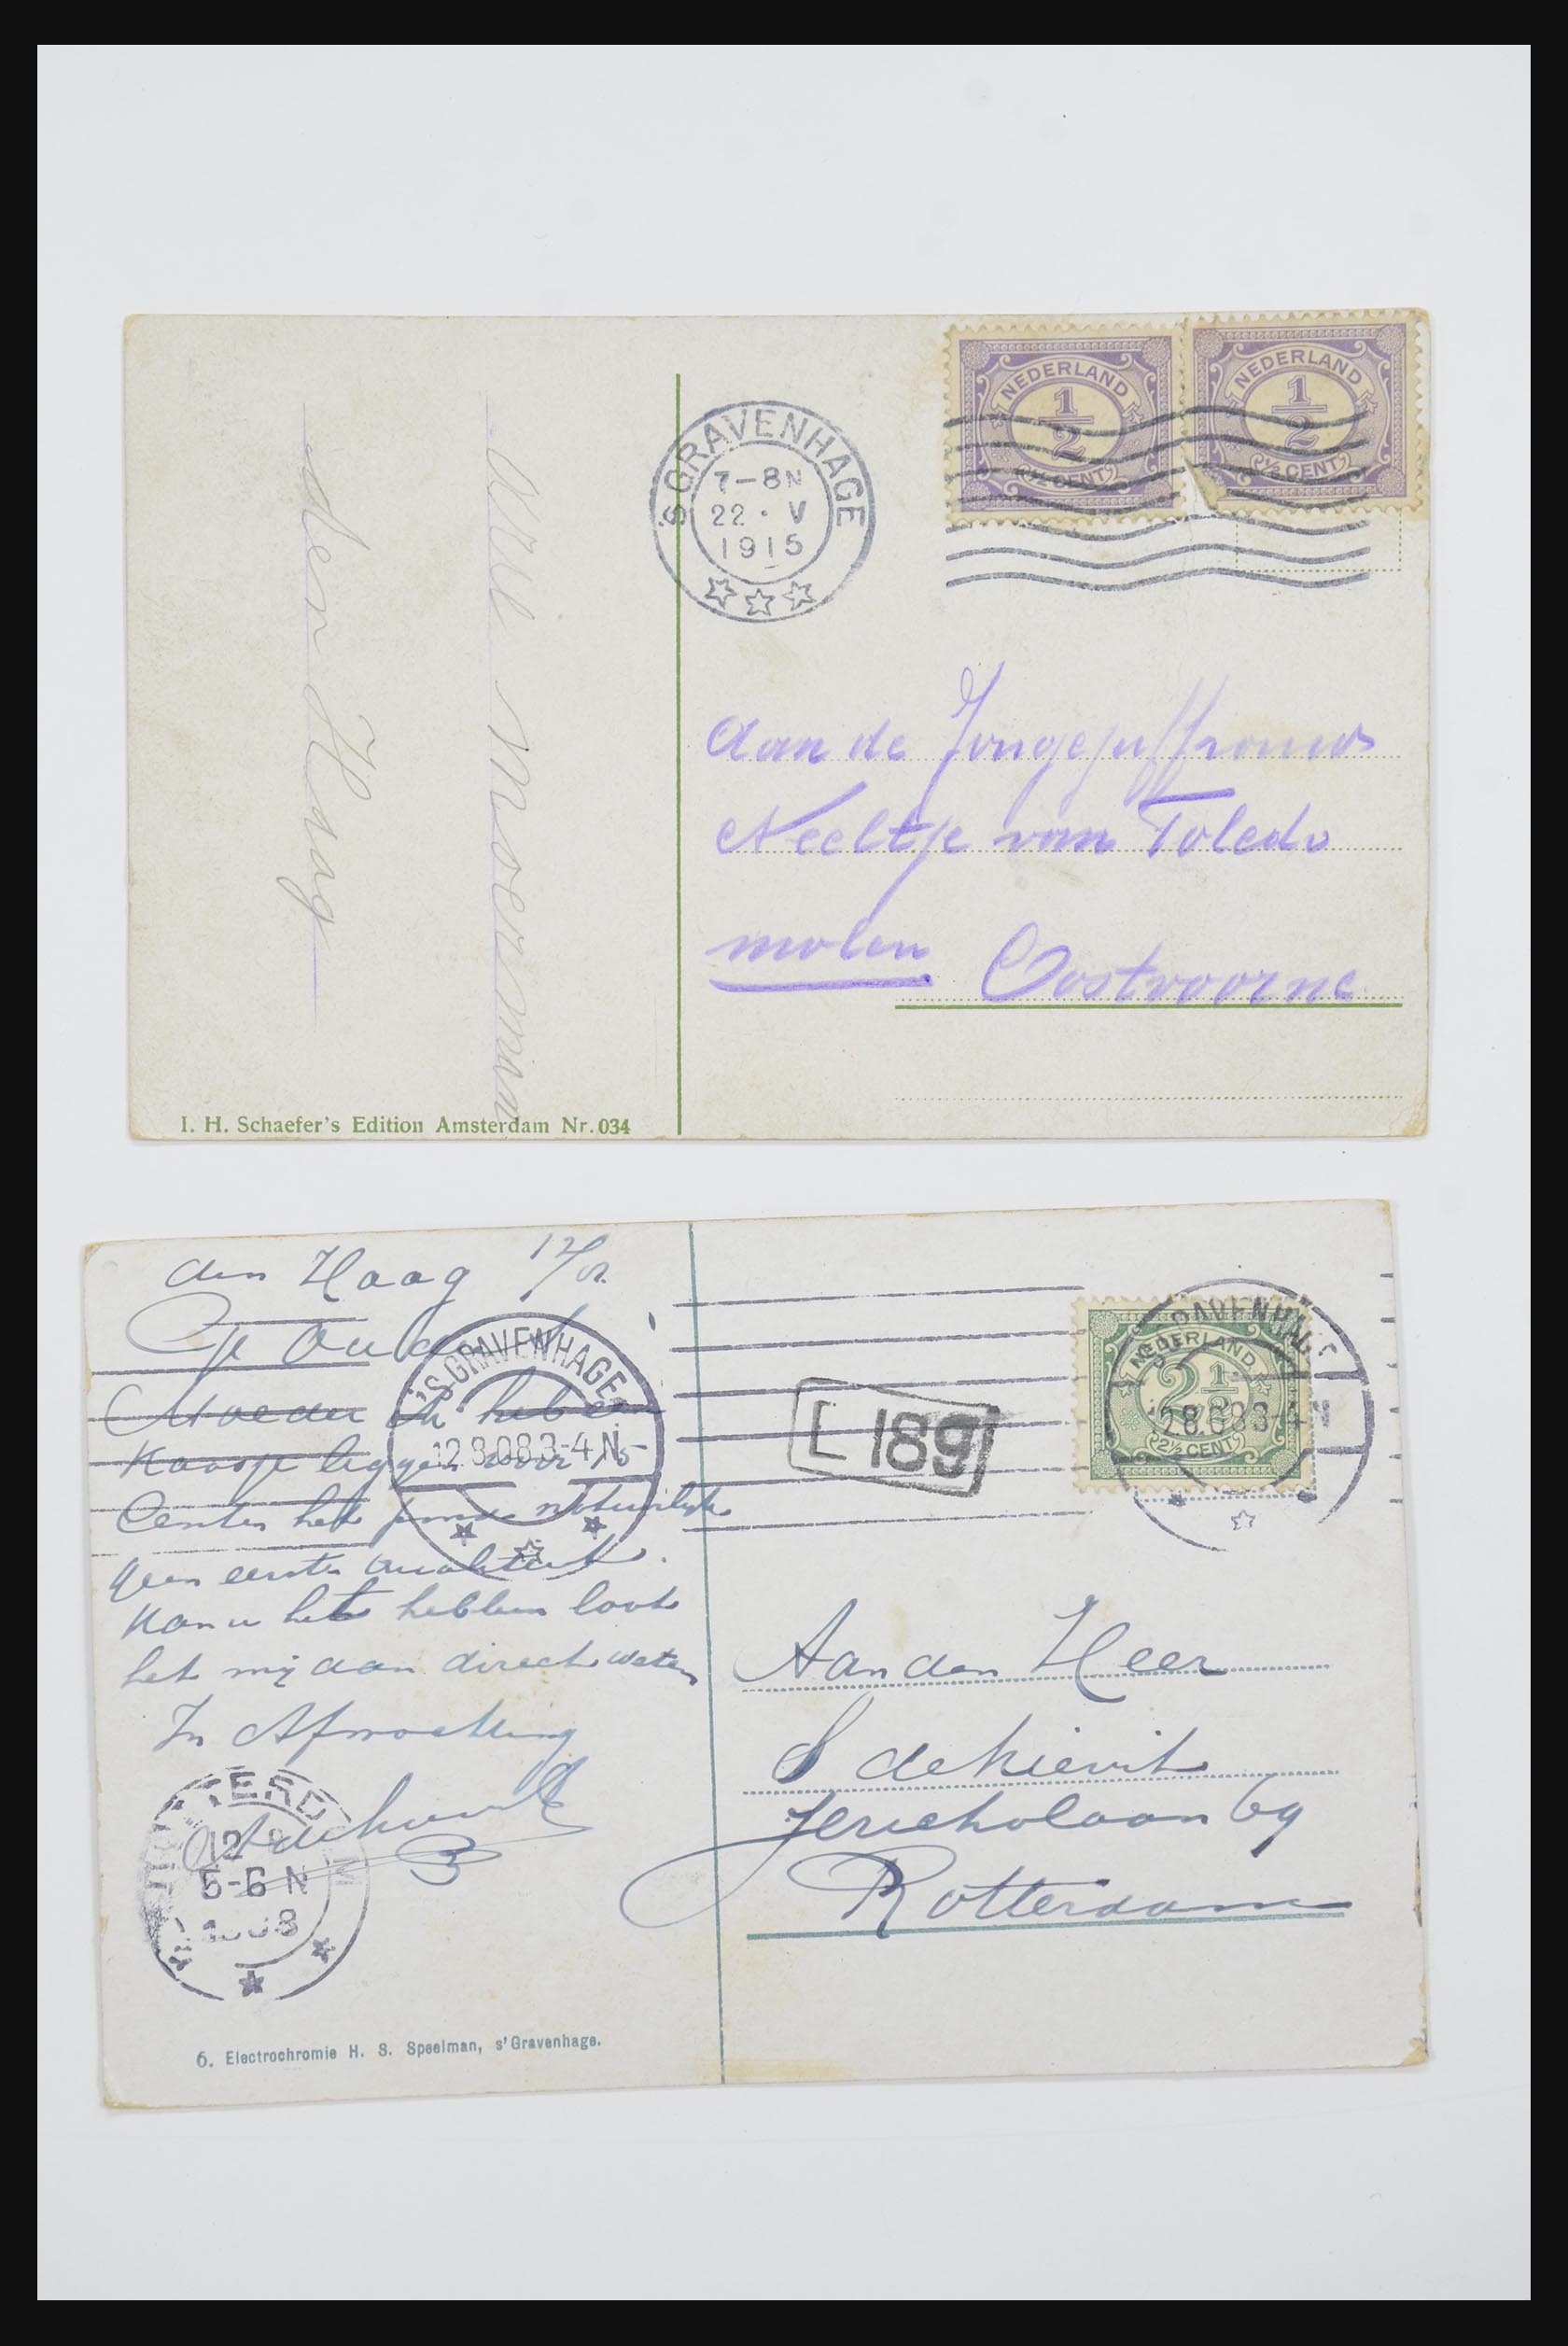 'S GRAVENHAGE
7-8N
22 · V
1915
NEDERLAND
1/2
½ CENT
NEDERLAND
1/2
½ CENT
den Haag
Aan de Jongejuffrouw
Neeltje van Toledo
molen
Oostvoorne
I. H. Schaefer's Edition Amsterdam Nr. 034
den Haag 12/8
Op Oud
Moeder te
Kaasje liggen voor 15
Centen het pond natuurlijk
geen eerste qualiteit.
Kan u het hebben laat
het mij dan direct weten
In Afwachting
'S-GRAVENHAGE
12.8.08 3-4 N
L 189
'S-GRAVENHAGE
12.8.08 3-4 N
NEDERLAND
2½
2½ CENT
Aan den Heer
S de Kievit
Jericholaan 69
Rotterdam
12
5-6 N
1908
6. Electrochromie H. S. Speelman, s'Gravenhage.